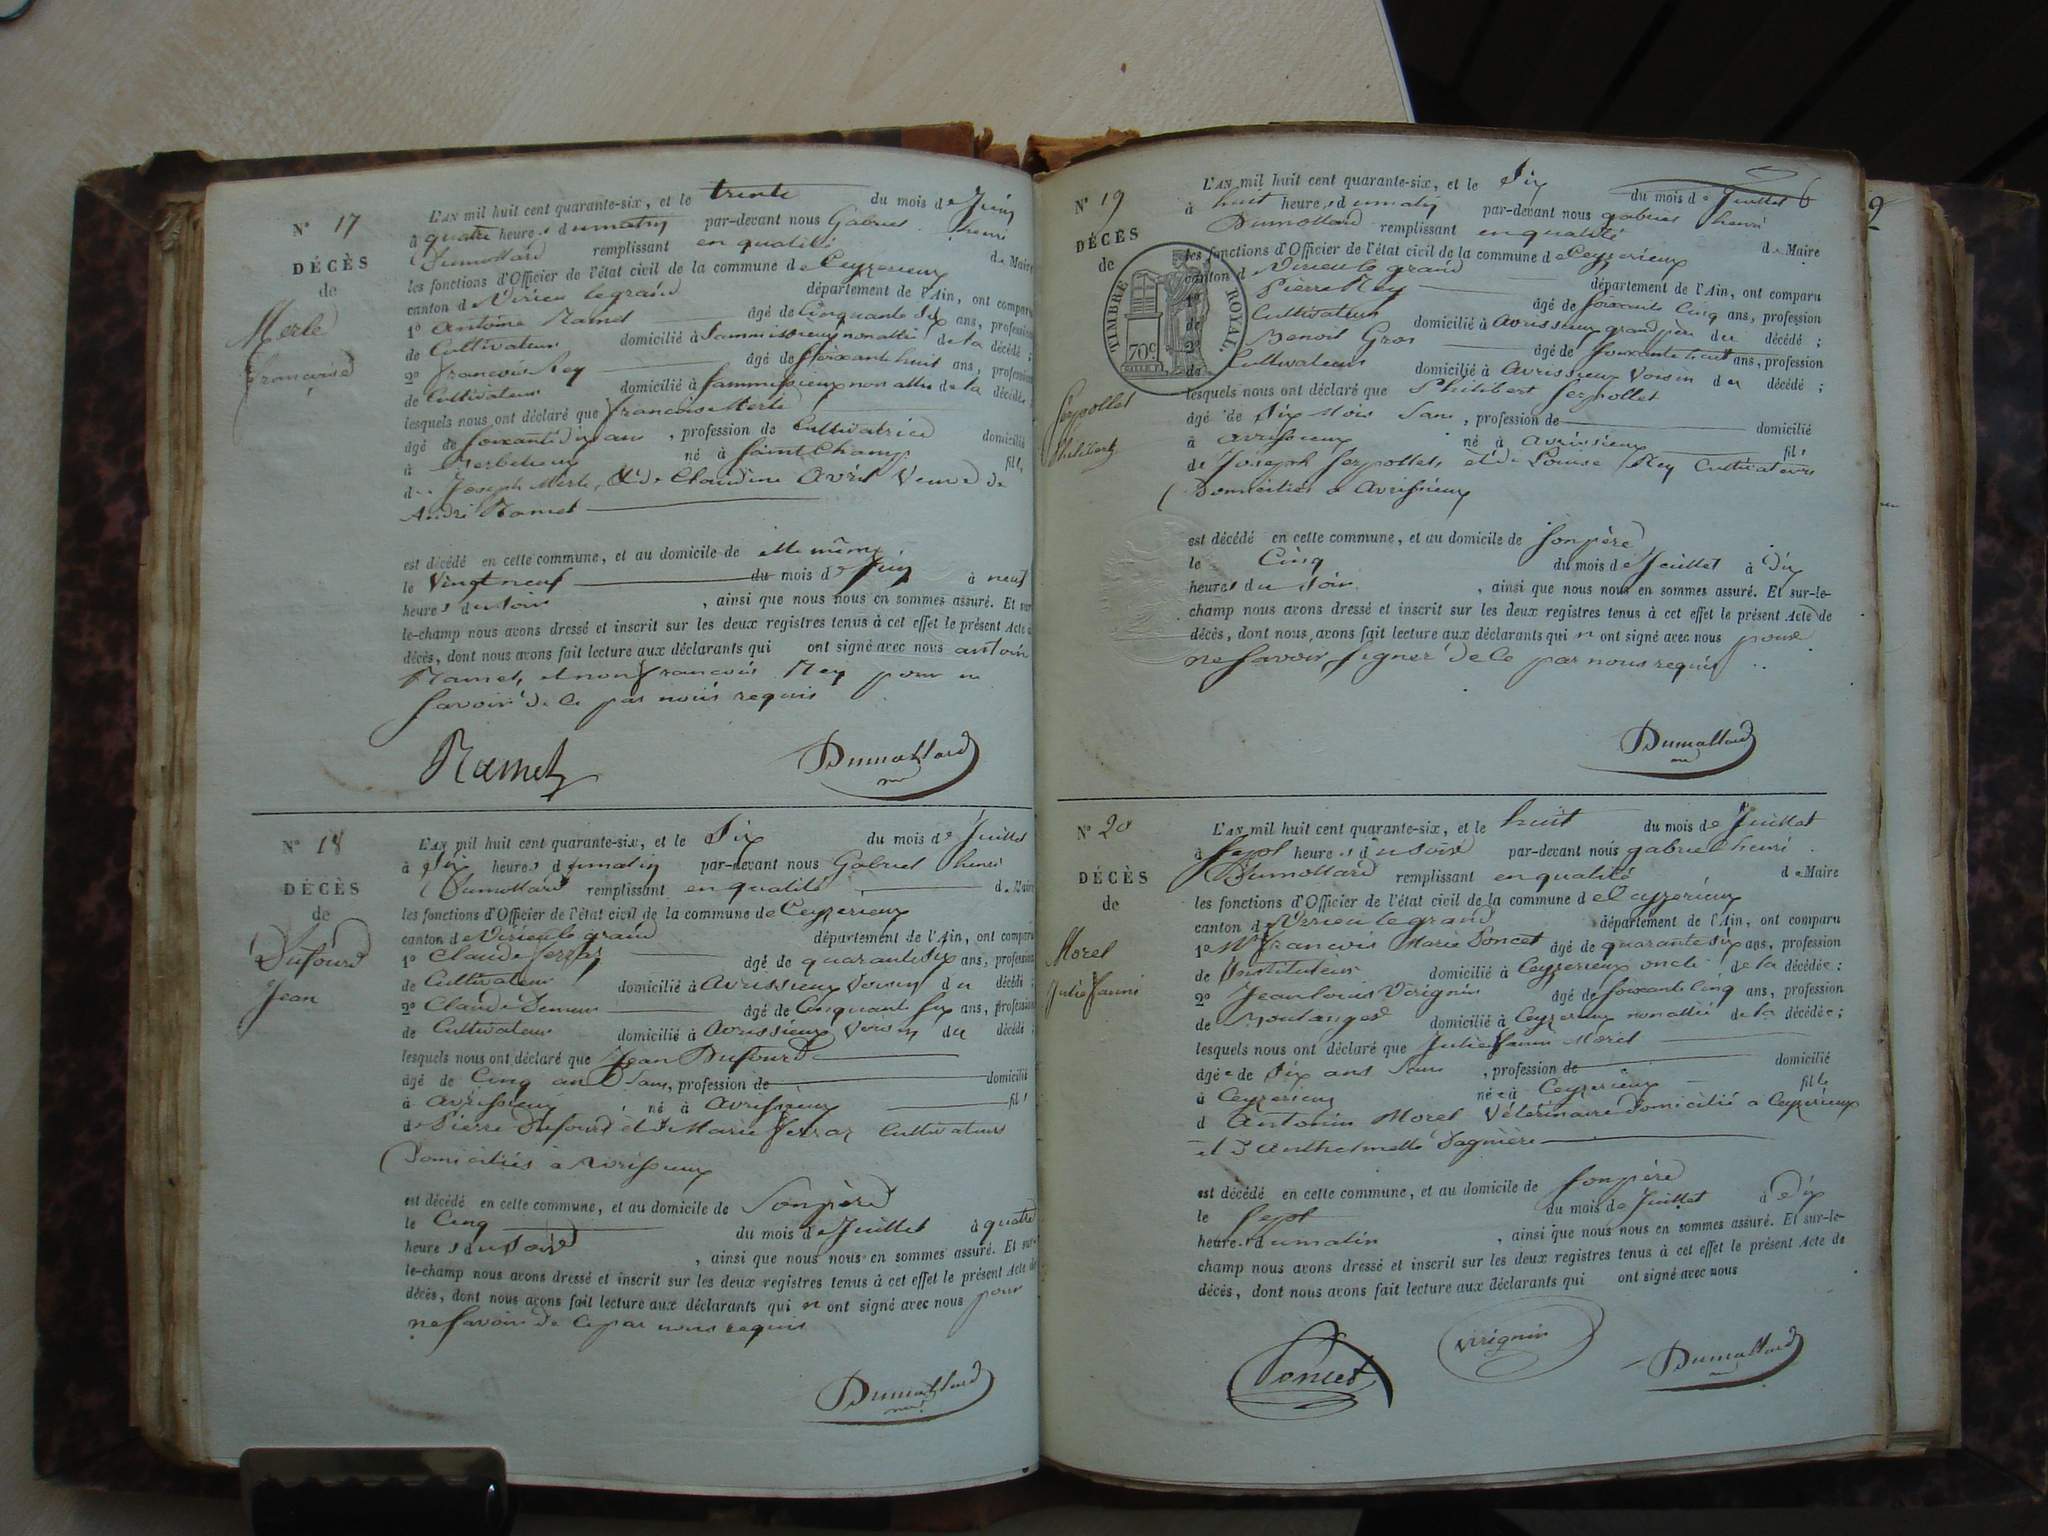 N° 17
DÉCÈS
de
Merle
Françoise
L'AN mil huit cent quarante-six, et le trente du mois de Juin
à quatre heures du matin par-devant nous Gabriel henri
Dumollard remplissant en qualité de Maire
les fonctions d'Officier de l'état civil de la commune de Ceyzerieux
canton de Virieu le grand département de l'Ain, ont comparu
1° Antoine Ramel âgé de Cinquante six ans, profession
de Cultivateur domicilié à Sammissieux non allié de la décédé ;
2° francois Rey âgé de soixante huit ans, profession
de Cultivateur domicilié à Sammissieux non allié de la décédée
lesquels nous ont déclaré que francoise Merle
âgé de soixante dix ans , profession de Cultivatrice domicilié
à né à Saint Champ fille
de Joseph Merle, & de Claudine Avril Veuve de
André Ramel
est décédé en cette commune, et au domicile de elle même
le Vingt neuf du mois de Juin à neuf
heures du soir , ainsi que nous nous en sommes assuré. Et sur-
le-champ nous avons dressé et inscrit sur les deux registres tenus à cet effet le présent Acte
décès, dont nous avons fait lecture aux déclarants qui ont signé avec nous antoine
Ramel, et non francois Rey pour ne
savoir de ce par nous requis
Ramel Dumollard
N° 18
DÉCÈS
de
Dufourd
Jean
L'AN mil huit cent quarante-six, et le Six du mois de Juillet
à six heures du matin par-devant nous Gabriel henri
Dumollard remplissant en qualité de Maire
les fonctions d'Officier de l'état civil de la commune de Ceyzerieux
canton de Virieu le grand département de l'Ain, ont comparu
1° Claude âgé de quarante six ans, profession
de Cultivateur domicilié à Avrissieux Voisin du décédé ;
2° Claude âgé de Cinquante six ans, profession
de Cultivateur domicilié à Avrissieux Voisin du décédé ;
lesquels nous ont déclaré que Jean Dufourd
âgé de Cinq ans Sans, profession de domicilié
à Avrissieux né à Avrissieux fils
de Pierre Dufourd et de Marie Cultivateurs
Domiciliés a Avrissieux
est décédé en cette commune, et au domicile de Son père
le Cinq du mois de Juillet à quatre
heures du soir , ainsi que nous nous en sommes assuré. Et sur-
le-champ nous avons dressé et inscrit sur les deux registres tenus à cet effet le présent Acte de
décès, dont nous avons fait lecture aux déclarants qui n'ont signé avec nous pour
ne savoir de ce par nous requis
Dumollard
6
N° 19
DÉCÈS
de
Serpollet
Philibert
TIMBRE ROYAL.
70c
L'AN mil huit cent quarante-six, et le Six du mois de Juillet
à huit heures du matin par-devant nous gabriel henri
Dumollard remplissant en qualité de Maire
les fonctions d'Officier de l'état civil de la commune de Ceyzerieux
canton de Virieu le grand département de l'Ain, ont comparu
1° Pierre Rey âgé de soixante Cinq ans, profession
de Cultivateur domicilié à Avrissieux grand père du décédé ;
2° Benoit Gros âgé de soixante huit ans, profession
de Cultivateur domicilié à Avrissieux Voisin du décédé ;
lesquels nous ont déclaré que Philibert Serpollet
âgé de Six Mois Sans , profession de domicilié
à Avrissieux né à Avrissieux fils
de Joseph Serpollet, et de Louise Rey Cultivateurs
Domiciliés a Avrissieux
est décédé en cette commune, et au domicile de son père
le Cinq du mois de Juillet à dix
heures du soir , ainsi que nous nous en sommes assuré. Et sur-le-
champ nous avons dressé et inscrit sur les deux registres tenus à cet effet le présent Acte de
décès, dont nous avons fait lecture aux déclarants qui n ont signé avec nous pour
ne savoir signer de ce par nous requis
Dumollard
N° 20
DÉCÈS
de
Morel
Julie Fanni
L'AN mil huit cent quarante-six, et le huit du mois de Juillet
à sept heures du soir par-devant nous gabriel henri
Dumollard remplissant en qualité de Maire
les fonctions d'Officier de l'état civil de la commune de Ceyzerieux
canton de Virieu le grand département de l'Ain, ont comparu
1° Mr francois Marie Poncet âgé de quarante six ans, profession
de Instituteur domicilié à Ceyzerieux oncle de la décédée ;
2° Jean louis Virignin âgé de soixante Cinq ans, profession
de Boulanger domicilié à Ceyzerieux non allié de la décédée ;
lesquels nous ont déclaré que Julie fanni Morel
âgée de Six ans Sans , profession de domicilié
à Ceyzerieux née à Ceyzerieux fille
d Antonin Morel Vétérinaire Domicilié a Ceyzerieux
et d'Anthelmette
est décédé en cette commune, et au domicile de son père
le Sept du mois de Juillet à dix
heures du matin , ainsi que nous nous en sommes assuré. Et sur-le-
champ nous avons dressé et inscrit sur les deux registres tenus à cet effet le présent Acte de
décès, dont nous avons fait lecture aux déclarants qui ont signé avec nous
Poncet Virignin Dumollard